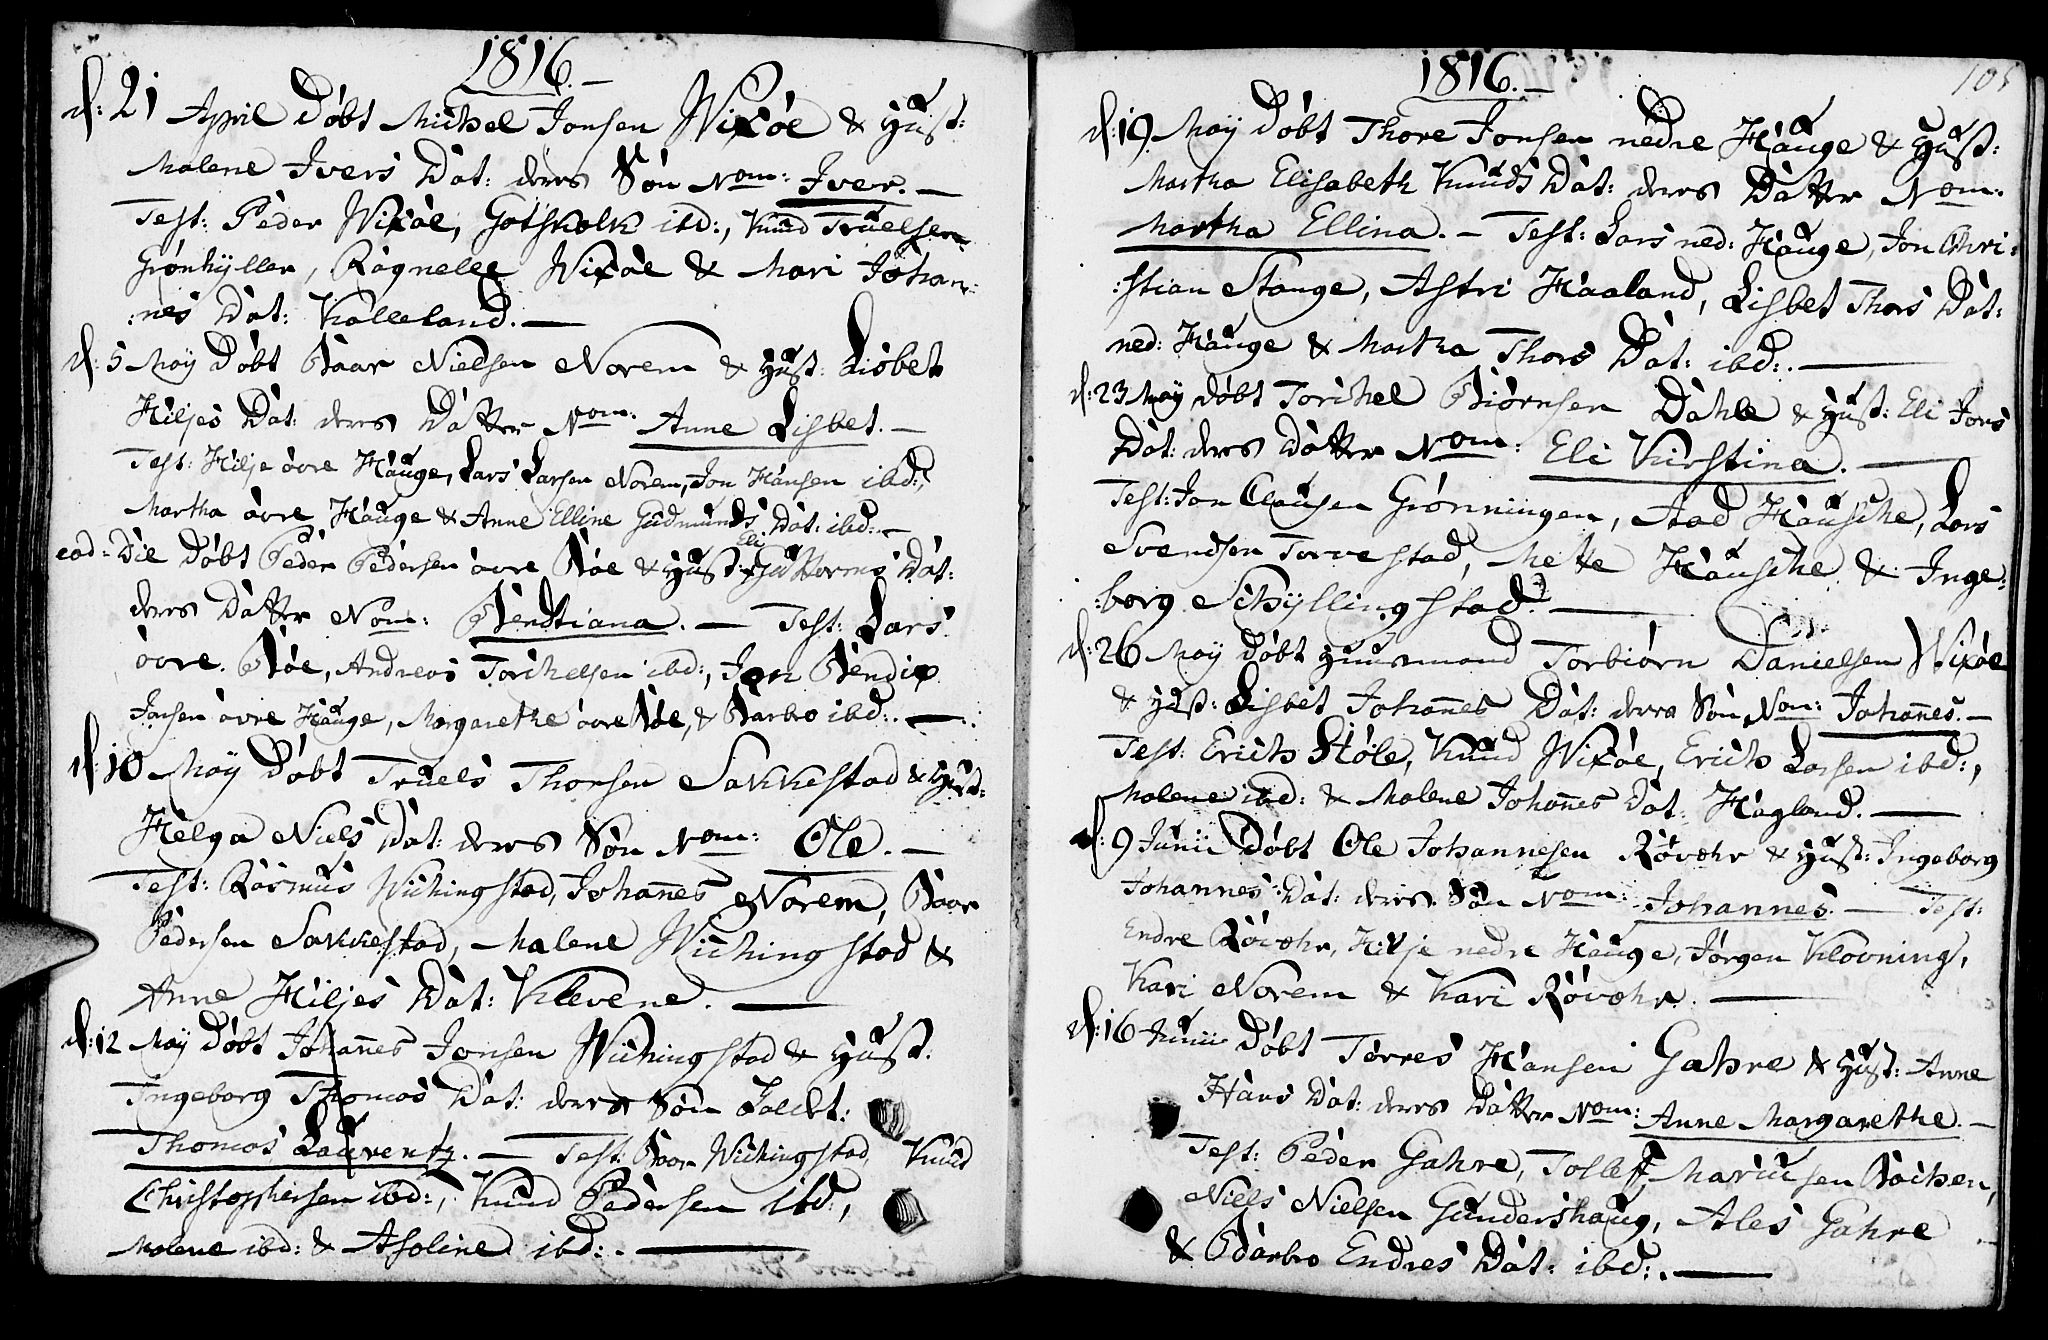 1816.
d: 21 April Døbt Michel Jonsen Wixøe & Hust:
Malene Ivers Dat: deres Søn Nom: Iver. —
Test: Peder Wixøe, Gotskalk ibd:, Knud Truelsen
Grønhyller, Ragnele Wixøe & Mari Johan:
:nes Dat: Kalleland. —
d: 5 May Døbt Baar Nielsen Norem & Hust: Lisbet
Hiljes Dat: deres Datter Nom: Anne Lisbet. —
Test: Hilje øvre Hauge, Lars Larsen Norem, Jon Hansen ibd:,
Martha øvre Hauge & Anne Elline Gudmunds Dat: ibd: —
eod = Die Døbt Peder Pedersen øvre Bøe & Hust: Eli Guttorms Dat:
deres Datter Nom: Bendtiana. — Test: Lars
øvre Bøe, Andreas Torchelsen ibd:, Jon Bendix
Jonsen øvre Hauge, Margarethe øvre Bøe, & Barbro ibd: . —
d: 10 May Døbt Truels Thorsen Sakkestad & Hust:
Helga Niels Dat: deres Søn Nom: Ole. —
Test: Rasmus Wichingstad, Johannes Norem, Baar
Pedersen Sakkestad, Malene Wichingstad &
Anne Hiljes Dat: Klevene. —
d: 12 May Døbt Johannes Jonsen Wichingstad & Hust:
Ingeborg Thomas Dat: deres Søn Kaldt:
Thomas Laurentz. — Test: Baar Wichingstad, Knud
Christophersen ibd:, Knud Pedersen ibd:,
Malene ibd: & Asoline ibd: . —
1816. —
105
d: 19 May Døbt Thore Jonsen nedre Hauge & Hust:
Martha Elisabeth Knuds Dat: deres Datter Nom:
Martha Ellina. — Test: Lars ned: Hauge, Jon Chri:
:stian Stange, Astri Haaland, Lisbet Thors Dat:
ned: Hauge & Martha Thors Dat: ibd: . —
d: 23 May Døbt Torchel Biørnsen Dahle & Hust: Eli Jons
Dat: deres Datter Nom: Eli Kirstina. —
Test: Jon Clausen Grønningen, Aad Hausche, Lars
Svendsen Torvestad, Mette Hausche & Inge:
:borg Schyllingstad. —
d: 26 May Døbt Huusmand Torbiørn Danielsen Wixøe
& Hust: Lisbet Johannes Dat: deres Søn Nom: Johannes. —
Test: Erich Støle, Knud Wixøe, Erich Larsen ibd:,
Malene ibd: & Malene Johannes Dat: Hagland. —
d: 9 Junii Døbt Ole Johannesen Røvæhr & Hust: Ingeborg
Johannes Dat: deres Søn Nom: Johannes. — Test:
Endre Røvæhr, Hilje nedre Hauge, Jørgen Klovning,
Kari Norem & Kari Røvæhr. —
d: 16 Junii Døbt Tørres Hansen Gahre & Hust: Anne
Hans Dat: deres Datter Nom: Anne Margarethe. —
Test: Peder Gahre, Tollef Mariusen Bochen,
Niels Nielsen Gundershaug, Ales Gahre
& Barbro Endres Dat: ibd: . —